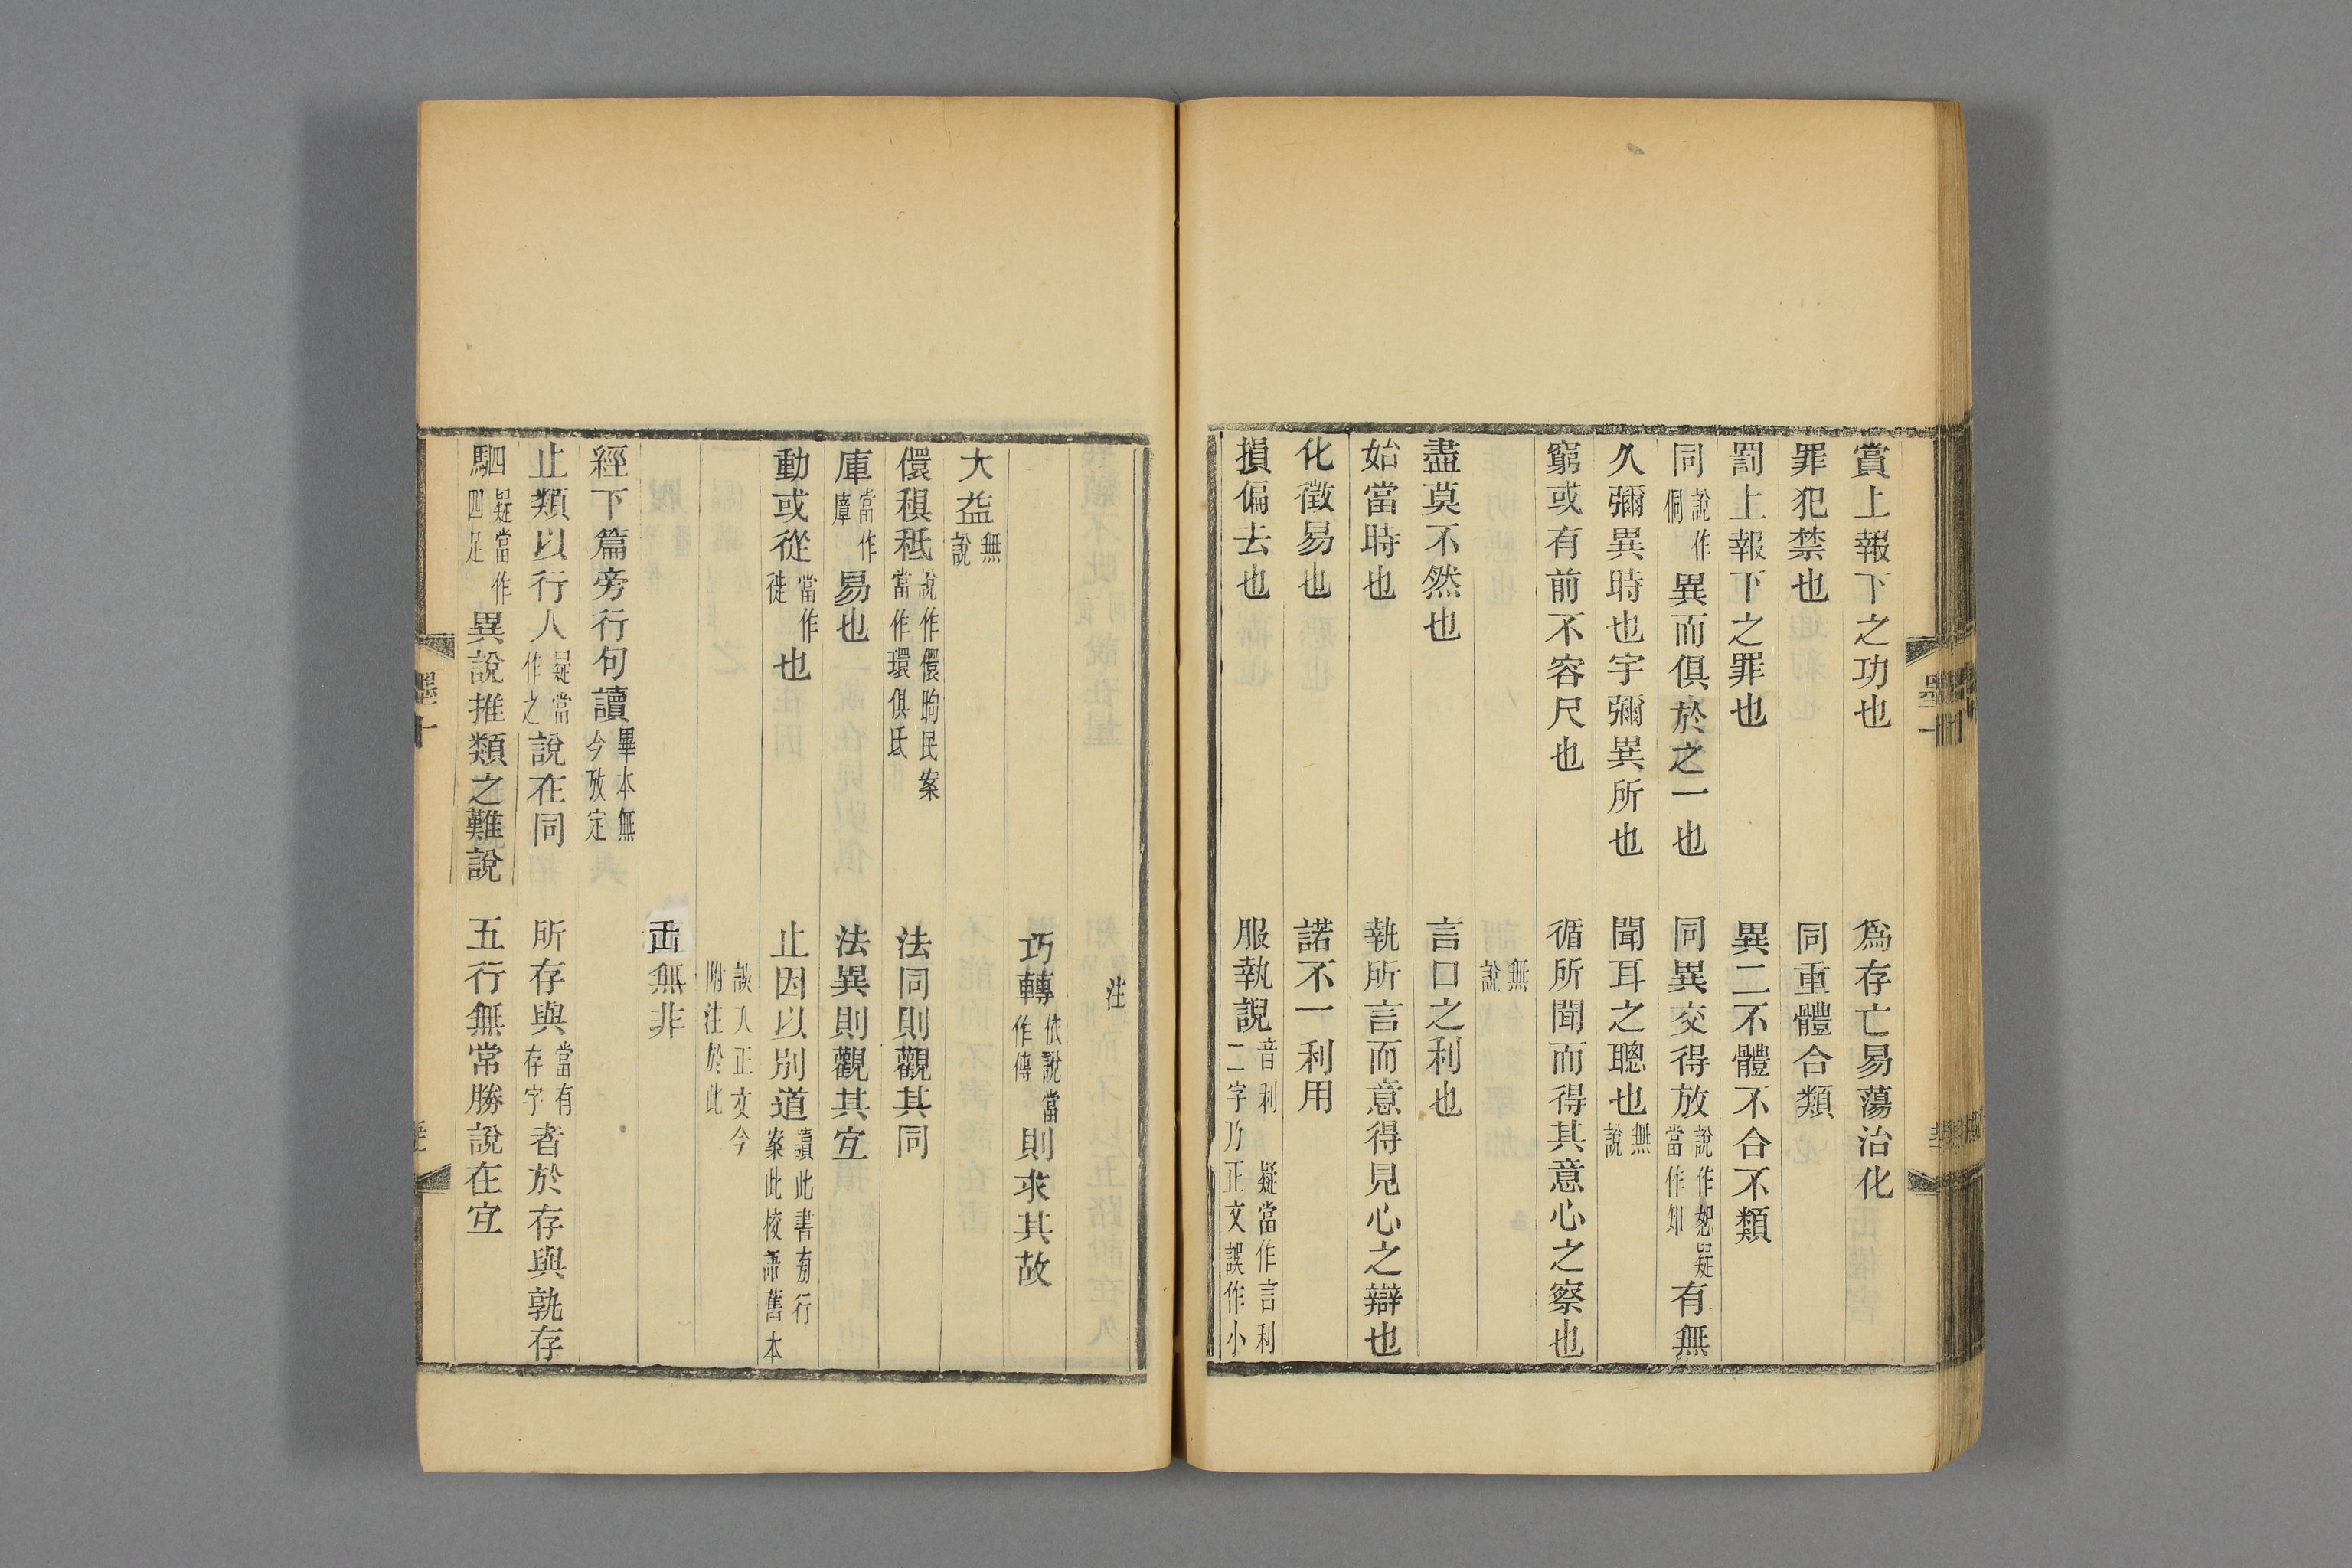 賞上報下之功也　爲存亡易蕩治化
罪犯禁也　同重體合類
罰上報下之罪也　異二不體不合不類
同說作侗異而俱於之一也　同異交得放說作恕疑當作知有無
久彌異時也宇彌異所也　聞耳之聰也無說
窮或有前不容尺也　循所聞而得其意心之察也
無說
盡莫不然也　言口之利也
始當時也　執所言而意得見心之辯也
化徵易也　諾不一利用
損偏去也　服執說音利　疑當作言利二字乃正文誤作小
注
巧轉依說當作傳則求其故
大益無說
儇䅵秪說作儇昫民案當作環俱氐　法同則觀其同
庫當作㢓易也　法異則觀其宜
動或從當作徙也　止因以別道讀此書旁行案此校語舊本
誤入正文今附注於此
𠙺無非
經下篇旁行句讀畢本無今攷定
止類以行人疑當作之說在同　所存與當有存字者於存與孰存
駟疑當作四足異說推類之難說　五行無常勝說在宜
墨十